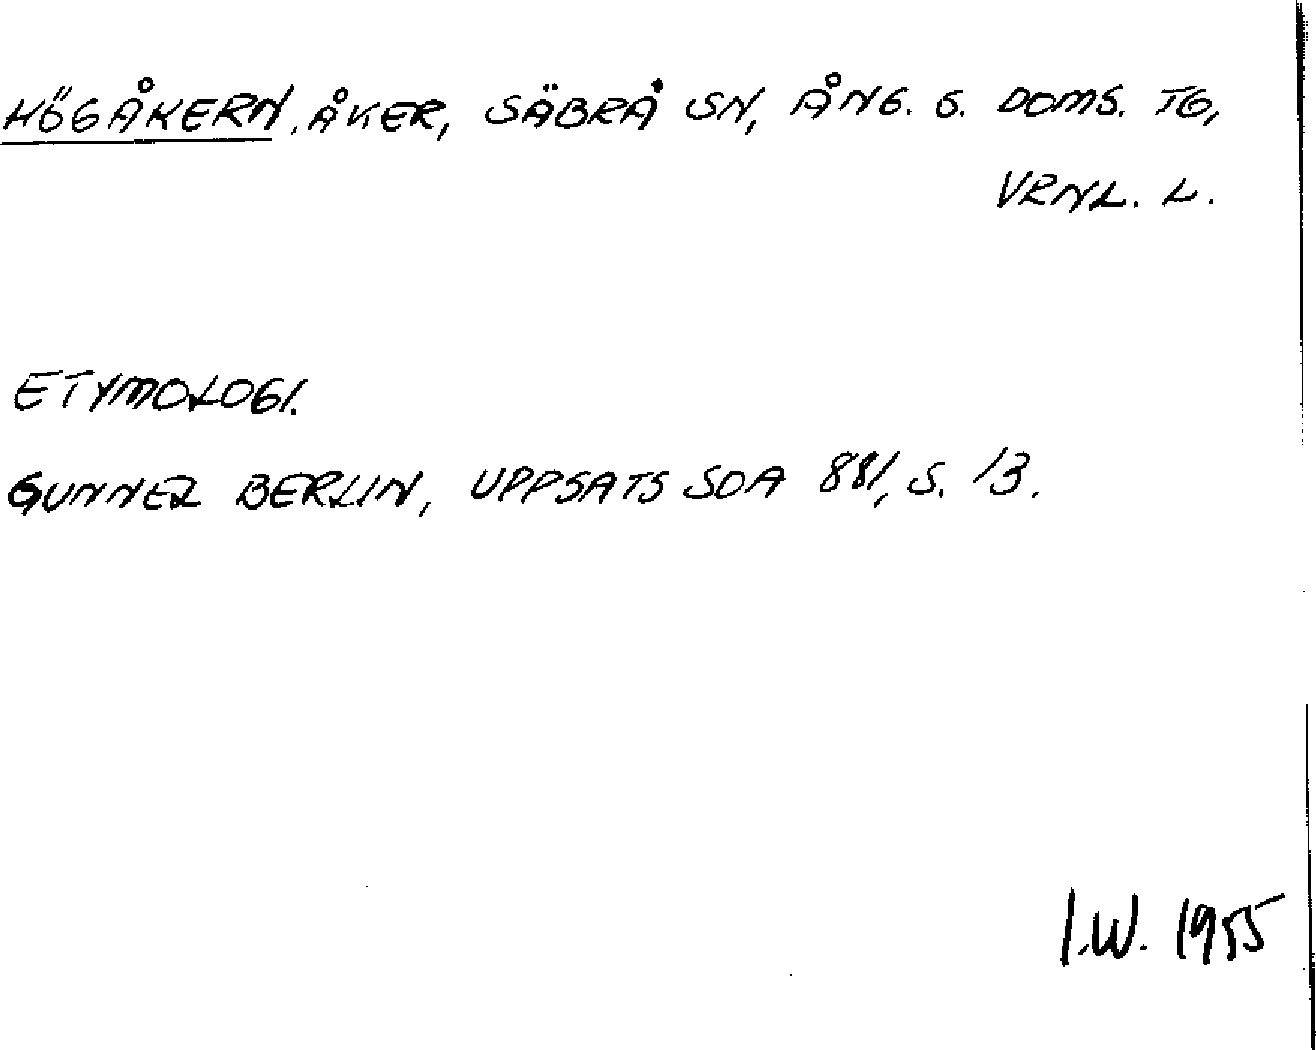 HÖGÅKERN, ÅKER, SÄBRÅ SN, ÅNG. S. DOMS. TG,
VRNL. L.
ETYMOLOGI.
GUNNEL BERLIN, UPPSATS SOA 881, S. 13.
I.W. 1955